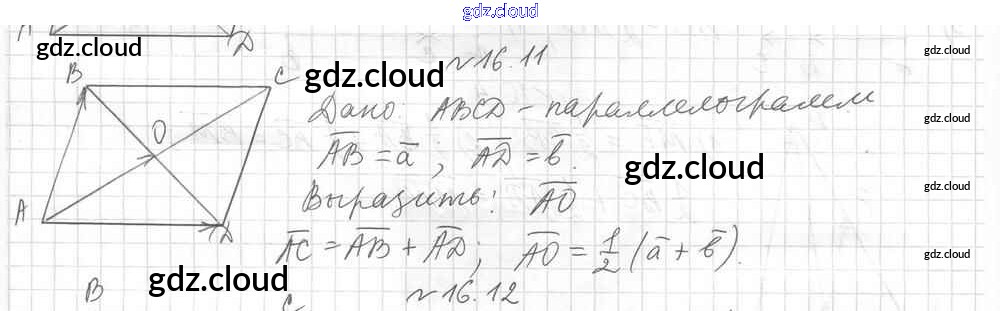 gdz.cloud
A D
gdz.cloud gdz.cloud
№16.11
B C gdz.cloud
Дано ABCD - параллелограмм
gdz.cloud
O
AB = a ; AD = b.
gdz.cloud
A Выразить: AO gdz.cloud
D
AC = AB + AD; AO = 1/2 (a + b).
gdz.cloud gdz.cloud
B №16.12
C